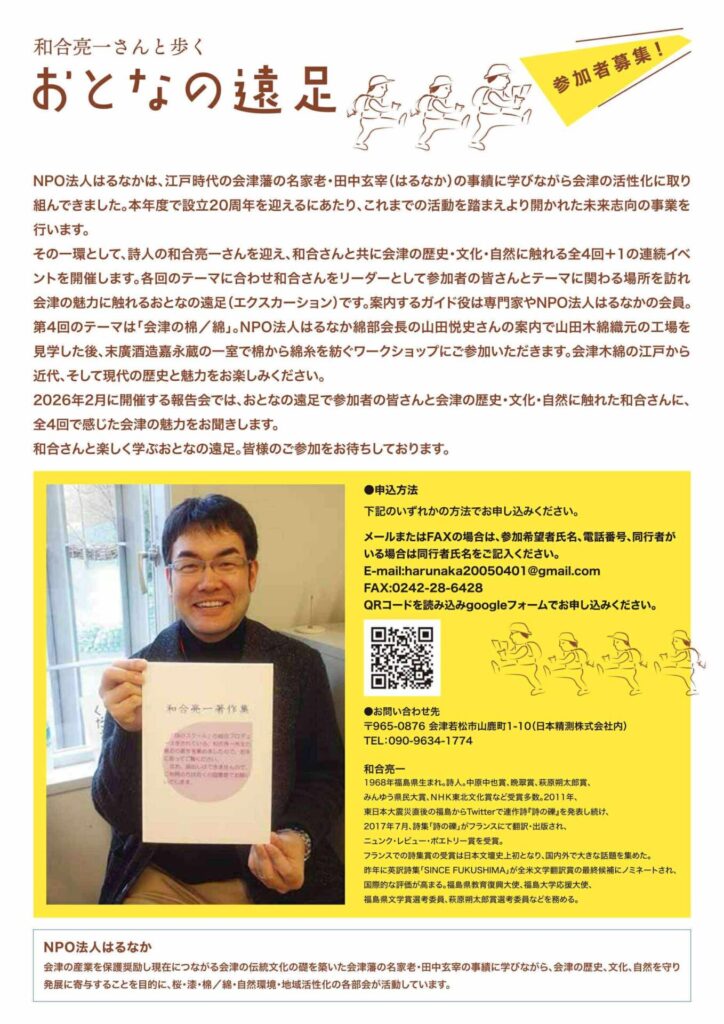 和合亮一さんと歩く
おとなの遠足
参加者募集！
NPO法人はるなかは、江戸時代の会津藩の名家老・田中玄宰（はるなか）の事績に学びながら会津の活性化に取り
組んできました。本年度で設立20周年を迎えるにあたり、これまでの活動を踏まえより開かれた未来志向の事業を
行います。
その一環として、詩人の和合亮一さんを迎え、和合さんと共に会津の歴史・文化・自然に触れる全4回＋1の連続イベ
ントを開催します。各回のテーマに合わせ和合さんをリーダーとして参加者の皆さんとテーマに関わる場所を訪れ
会津の魅力に触れるおとなの遠足（エクスカーション）です。案内するガイド役は専門家やNPO法人はるなかの会員。
第4回のテーマは「会津の棉／綿」。NPO法人はるなか綿部会長の山田悦史さんの案内で山田木綿織元の工場を
見学した後、末廣酒造嘉永蔵の一室で棉から綿糸を紡ぐワークショップにご参加いただきます。会津木綿の江戸から
近代、そして現代の歴史と魅力をお楽しみください。
2026年2月に開催する報告会では、おとなの遠足で参加者の皆さんと会津の歴史・文化・自然に触れた和合さんに、
全4回で感じた会津の魅力をお聞きします。
和合さんと楽しく学ぶおとなの遠足。皆様のご参加をお待ちしております。
●申込方法
下記のいずれかの方法でお申し込みください。
メールまたはFAXの場合は、参加希望者氏名、電話番号、同行者が
いる場合は同行者氏名をご記入ください。
E-mail:harunaka20050401@gmail.com
FAX:0242-28-6428
QRコードを読み込みgoogleフォームでお申し込みください。
●お問い合わせ先
〒965-0876 会津若松市山鹿町1-10（日本精測株式会社内）
TEL：090-9634-1774
和合亮一
1968年福島県生まれ。詩人。中原中也賞、晩翠賞、萩原朔太郎賞、
みんゆう県民大賞、NHK東北文化賞など受賞多数。2011年、
東日本大震災直後の福島からTwitterで連作詩『詩の礫』を発表し続け、
2017年7月、詩集「詩の礫」がフランスにて翻訳・出版され、
ニュンク・レビュー・ポエトリー賞を受賞。
フランスでの詩集賞の受賞は日本文壇史上初となり、国内外で大きな話題を集めた。
昨年に英訳詩集「SINCE FUKUSHIMA」が全米文学翻訳賞の最終候補にノミネートされ、
国際的な評価が高まる。福島県教育復興大使、福島大学応援大使、
福島県文学賞選考委員、萩原朔太郎賞選考委員などを務める。
和合亮一著作集
NPO法人はるなか
会津の産業を保護奨励し現在につながる会津の伝統文化の礎を築いた会津藩の名家老・田中玄宰の事績に学びながら、会津の歴史、文化、自然を守り
発展に寄与することを目的に、桜・漆・棉／綿・自然環境・地域活性化の各部会が活動しています。